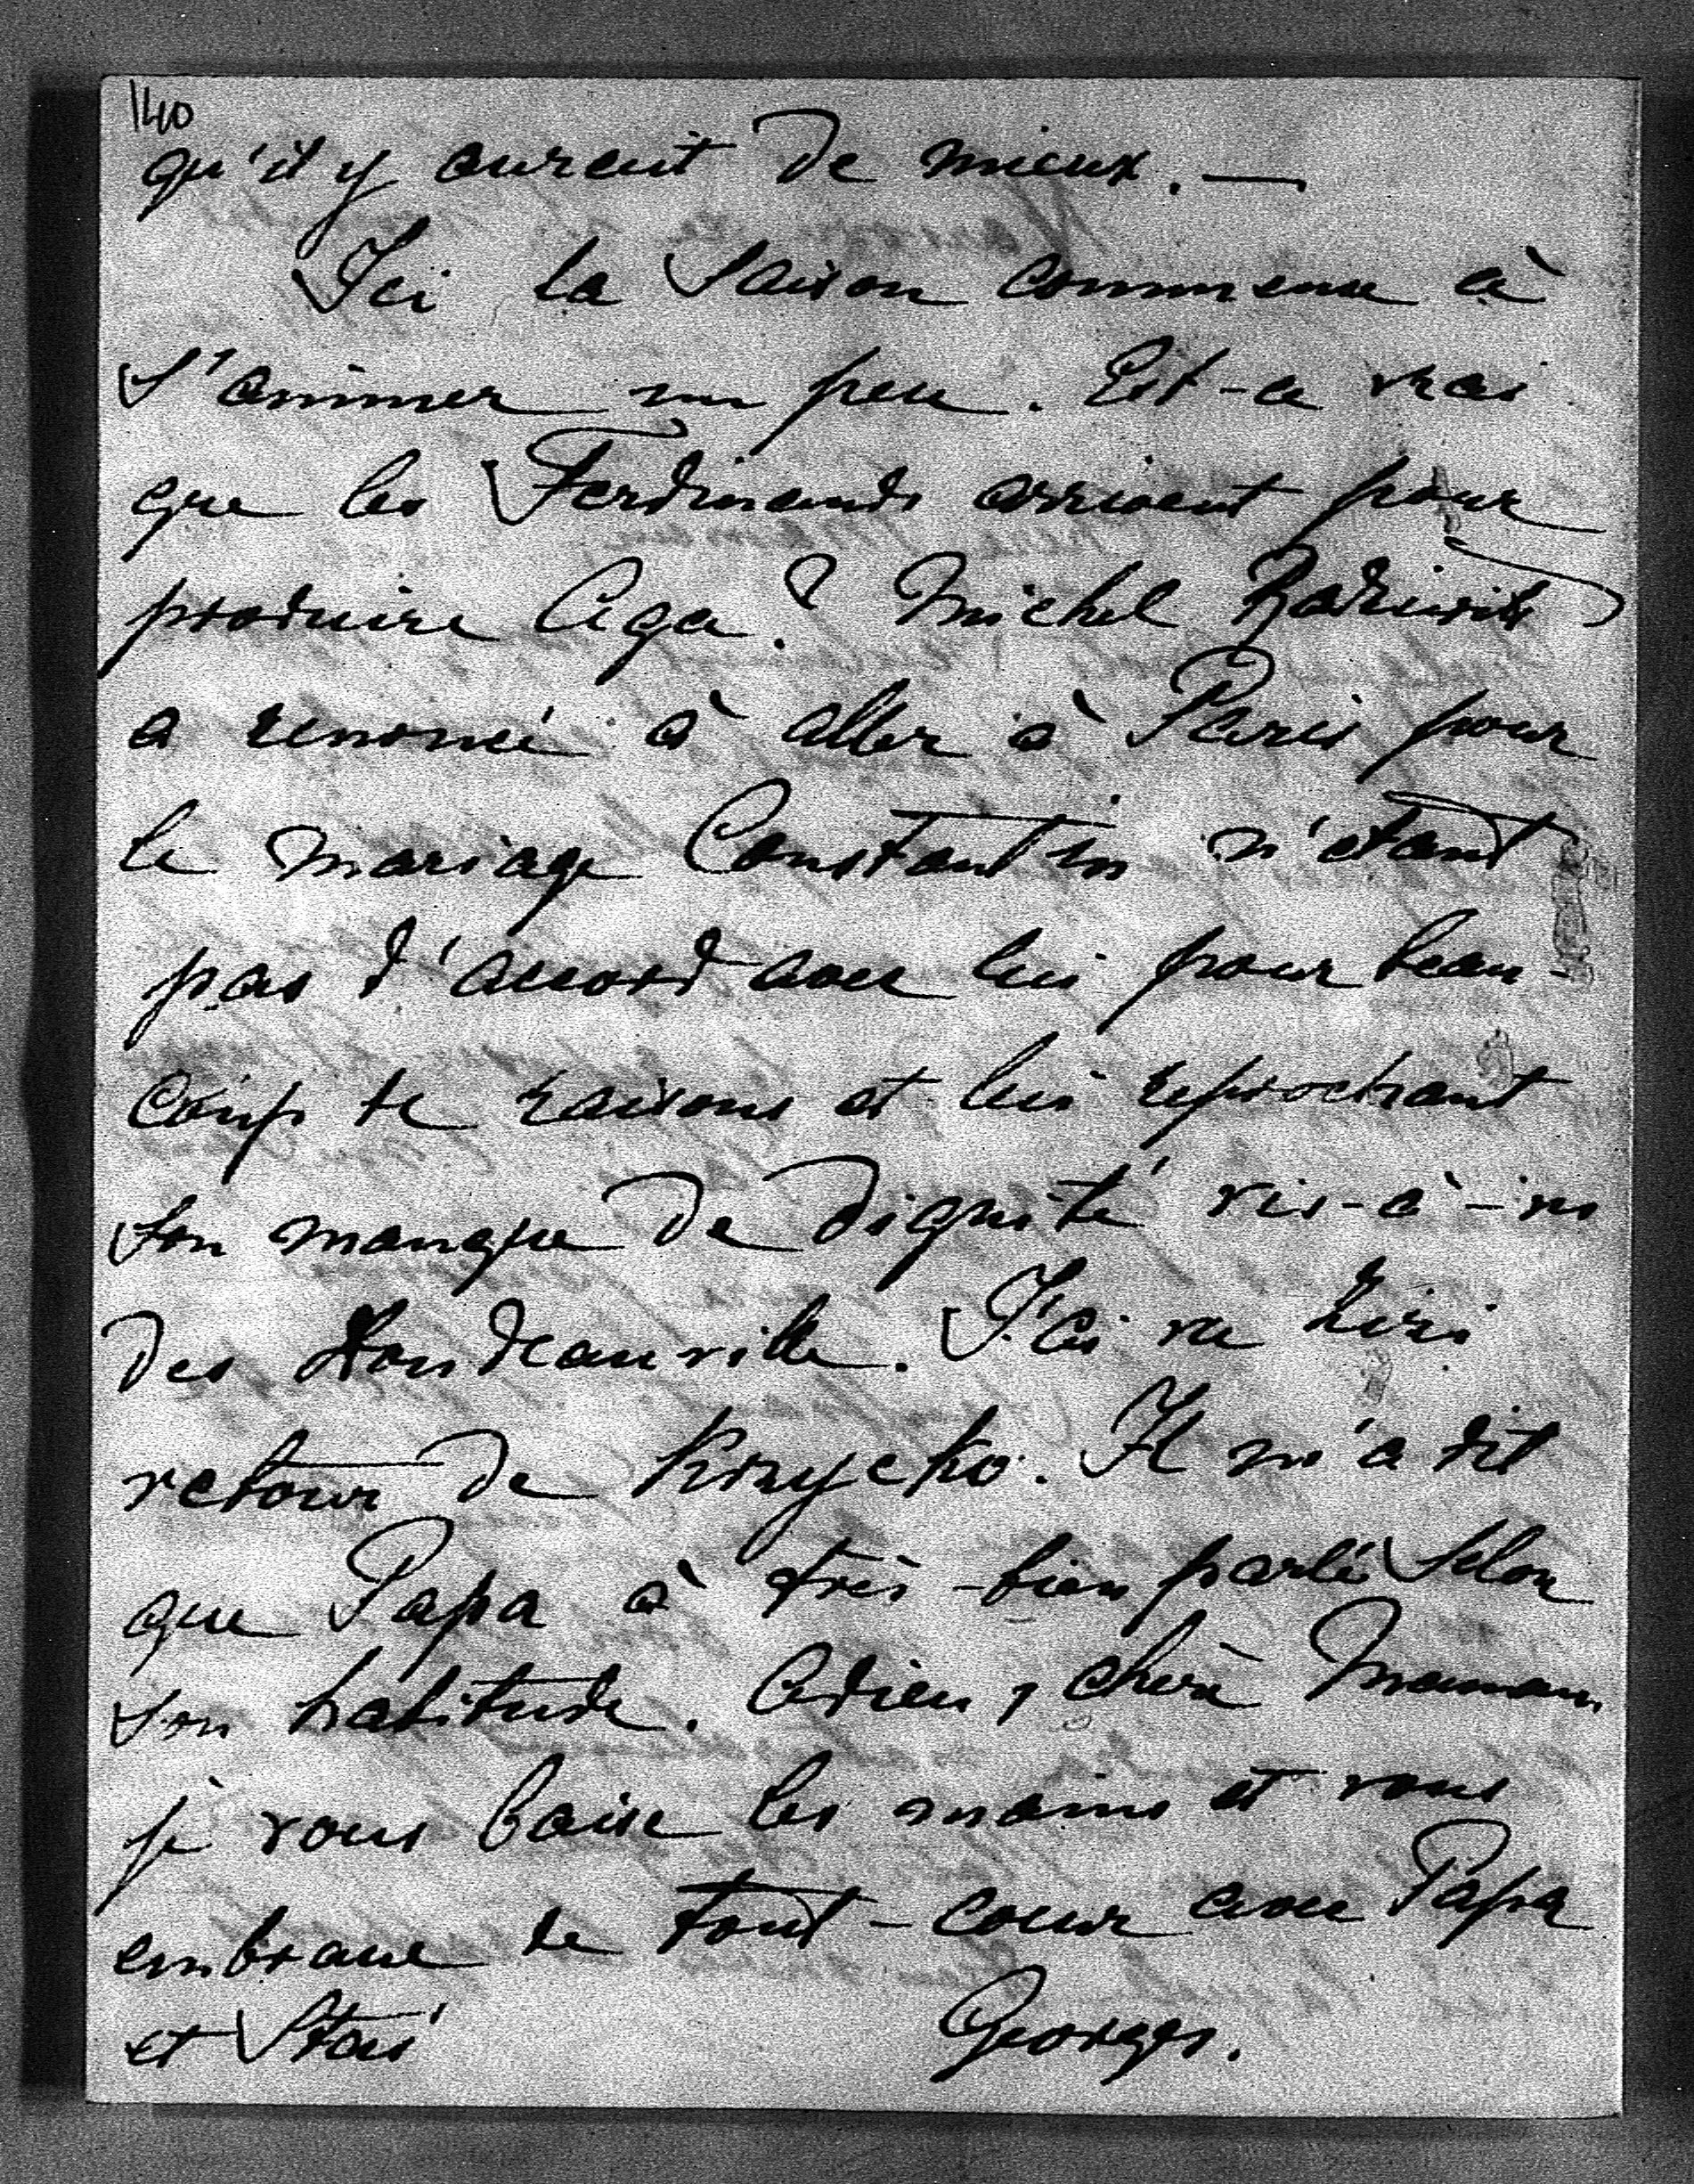 140
qu'il y aurait de mieux. —
Ici la Saison commence à
s'animer un peu. Est-ce vrai
que les Ferdinands arrivent pour
produire Aga? Michel Radziwill
a renoncé à aller à Paris pour
le mariage Constantin n'étant
pas d'accord avec lui pour beau-
coup de raisons et lui reprochant
son manque de dignité vis-à-vis
des Doudeauville. J'ai vu
retour de
que Papa à très-bien parlé selon
son habitude. Adieu, chère Maman
je vous baise les mains et vous
embrasse de tout-coeur avec Papa
et Stas
Georges.